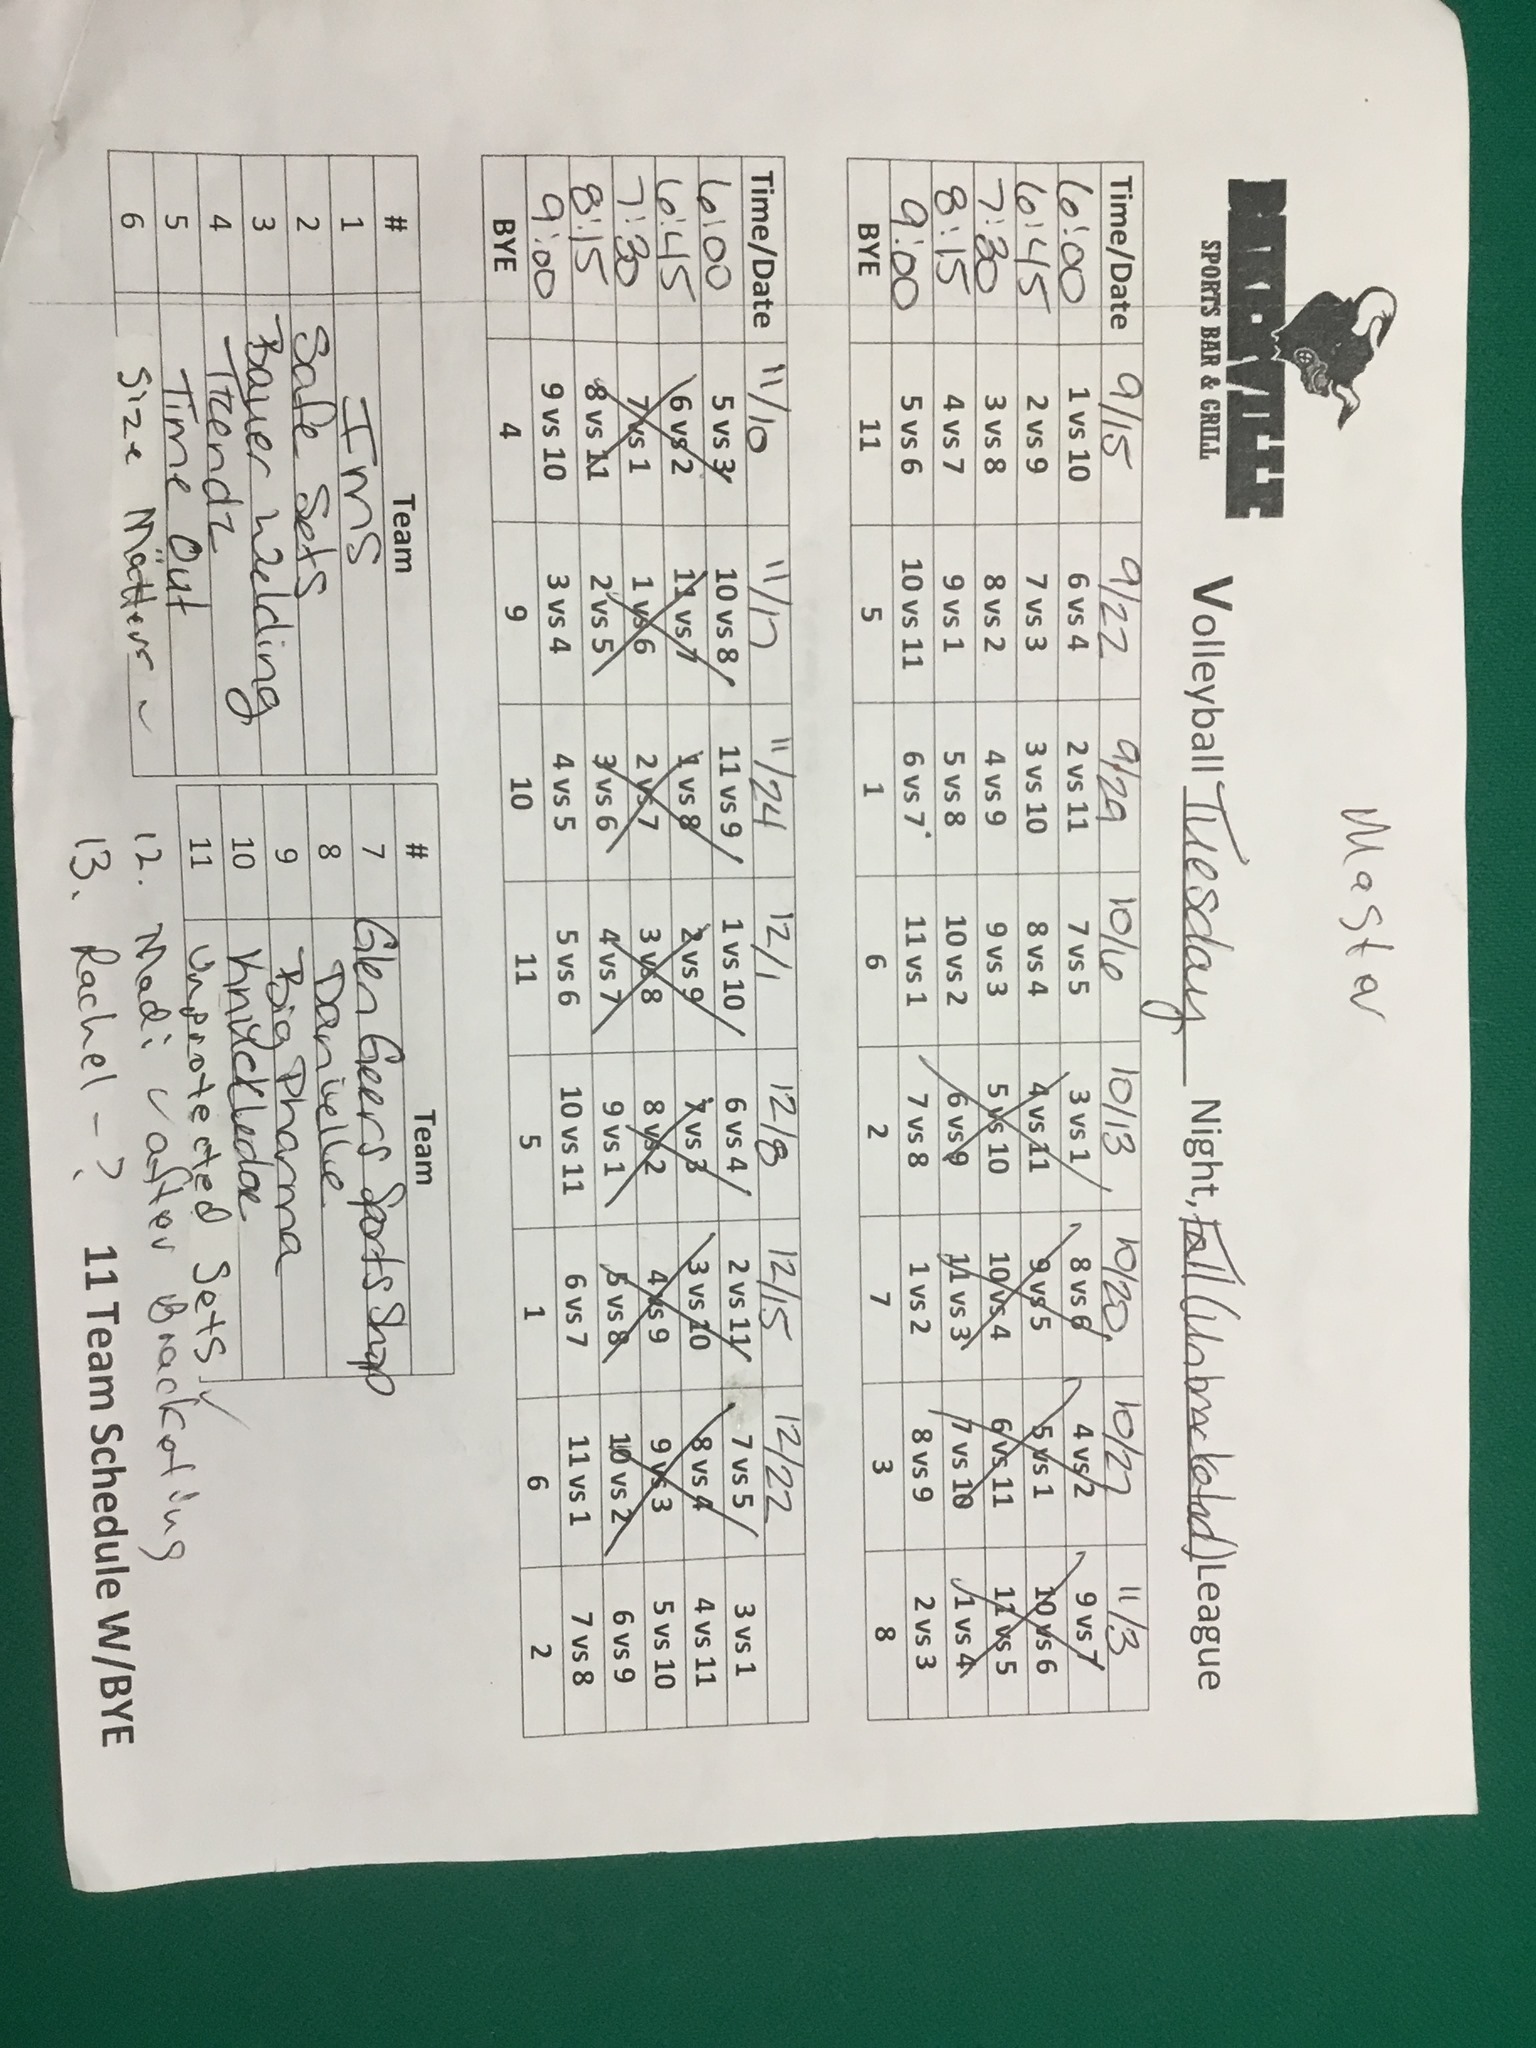 Master
SPORTS BAR & GRILL
Volleyball Tuesday Night, Fall (Unbracketed) League
Time/Date 9/15 9/22 9/29 10/6 10/13 10/20 10/27 11/3
6:00 1 vs 10 6 vs 4 2 vs 11 7 vs 5 3 vs 1 8 vs 6 4 vs 2 9 vs 7
6:45 2 vs 9 7 vs 3 3 vs 10 8 vs 4 4 vs 11 9 vs 5 5 vs 1 10 vs 6
7:30 3 vs 8 8 vs 2 4 vs 9 9 vs 3 5 vs 10 10 vs 4 6 vs 11 11 vs 5
8:15 4 vs 7 9 vs 1 5 vs 8 10 vs 2 6 vs 9 11 vs 3 7 vs 10 1 vs 4
9:00 5 vs 6 10 vs 11 6 vs 7 11 vs 1 7 vs 8 1 vs 2 8 vs 9 2 vs 3
BYE 11 5 1 6 2 7 3 8
Time/Date 11/10 11/17 11/24 12/1 12/8 12/15 12/22
6:00 5 vs 3 10 vs 8 11 vs 9 1 vs 10 6 vs 4 2 vs 11 7 vs 5 3 vs 1
6:45 6 vs 2 11 vs 7 1 vs 8 2 vs 9 7 vs 3 3 vs 10 8 vs 4 4 vs 11
7:30 7 vs 1 1 vs 6 2 vs 7 3 vs 8 8 vs 2 4 vs 9 9 vs 3 5 vs 10
8:15 8 vs 11 2 vs 5 3 vs 6 4 vs 7 9 vs 1 5 vs 8 10 vs 2 6 vs 9
9:00 9 vs 10 3 vs 4 4 vs 5 5 vs 6 10 vs 11 6 vs 7 11 vs 1 7 vs 8
BYE 4 9 10 11 5 1 6 2
# Team # Team
1 IMS 7 Glen Geers Sports Shop
2 Safe Sets 8 Danielle
3 Bauer Welding 9 Big Pharma
4 Trendz 10 Knuckledoe
5 Time Out 11 Unprotected Sets ✓
6 Size Matters ✓ 12. Madi ✓ after Bracketing
13. Rachel - ?
11 Team Schedule W/BYE